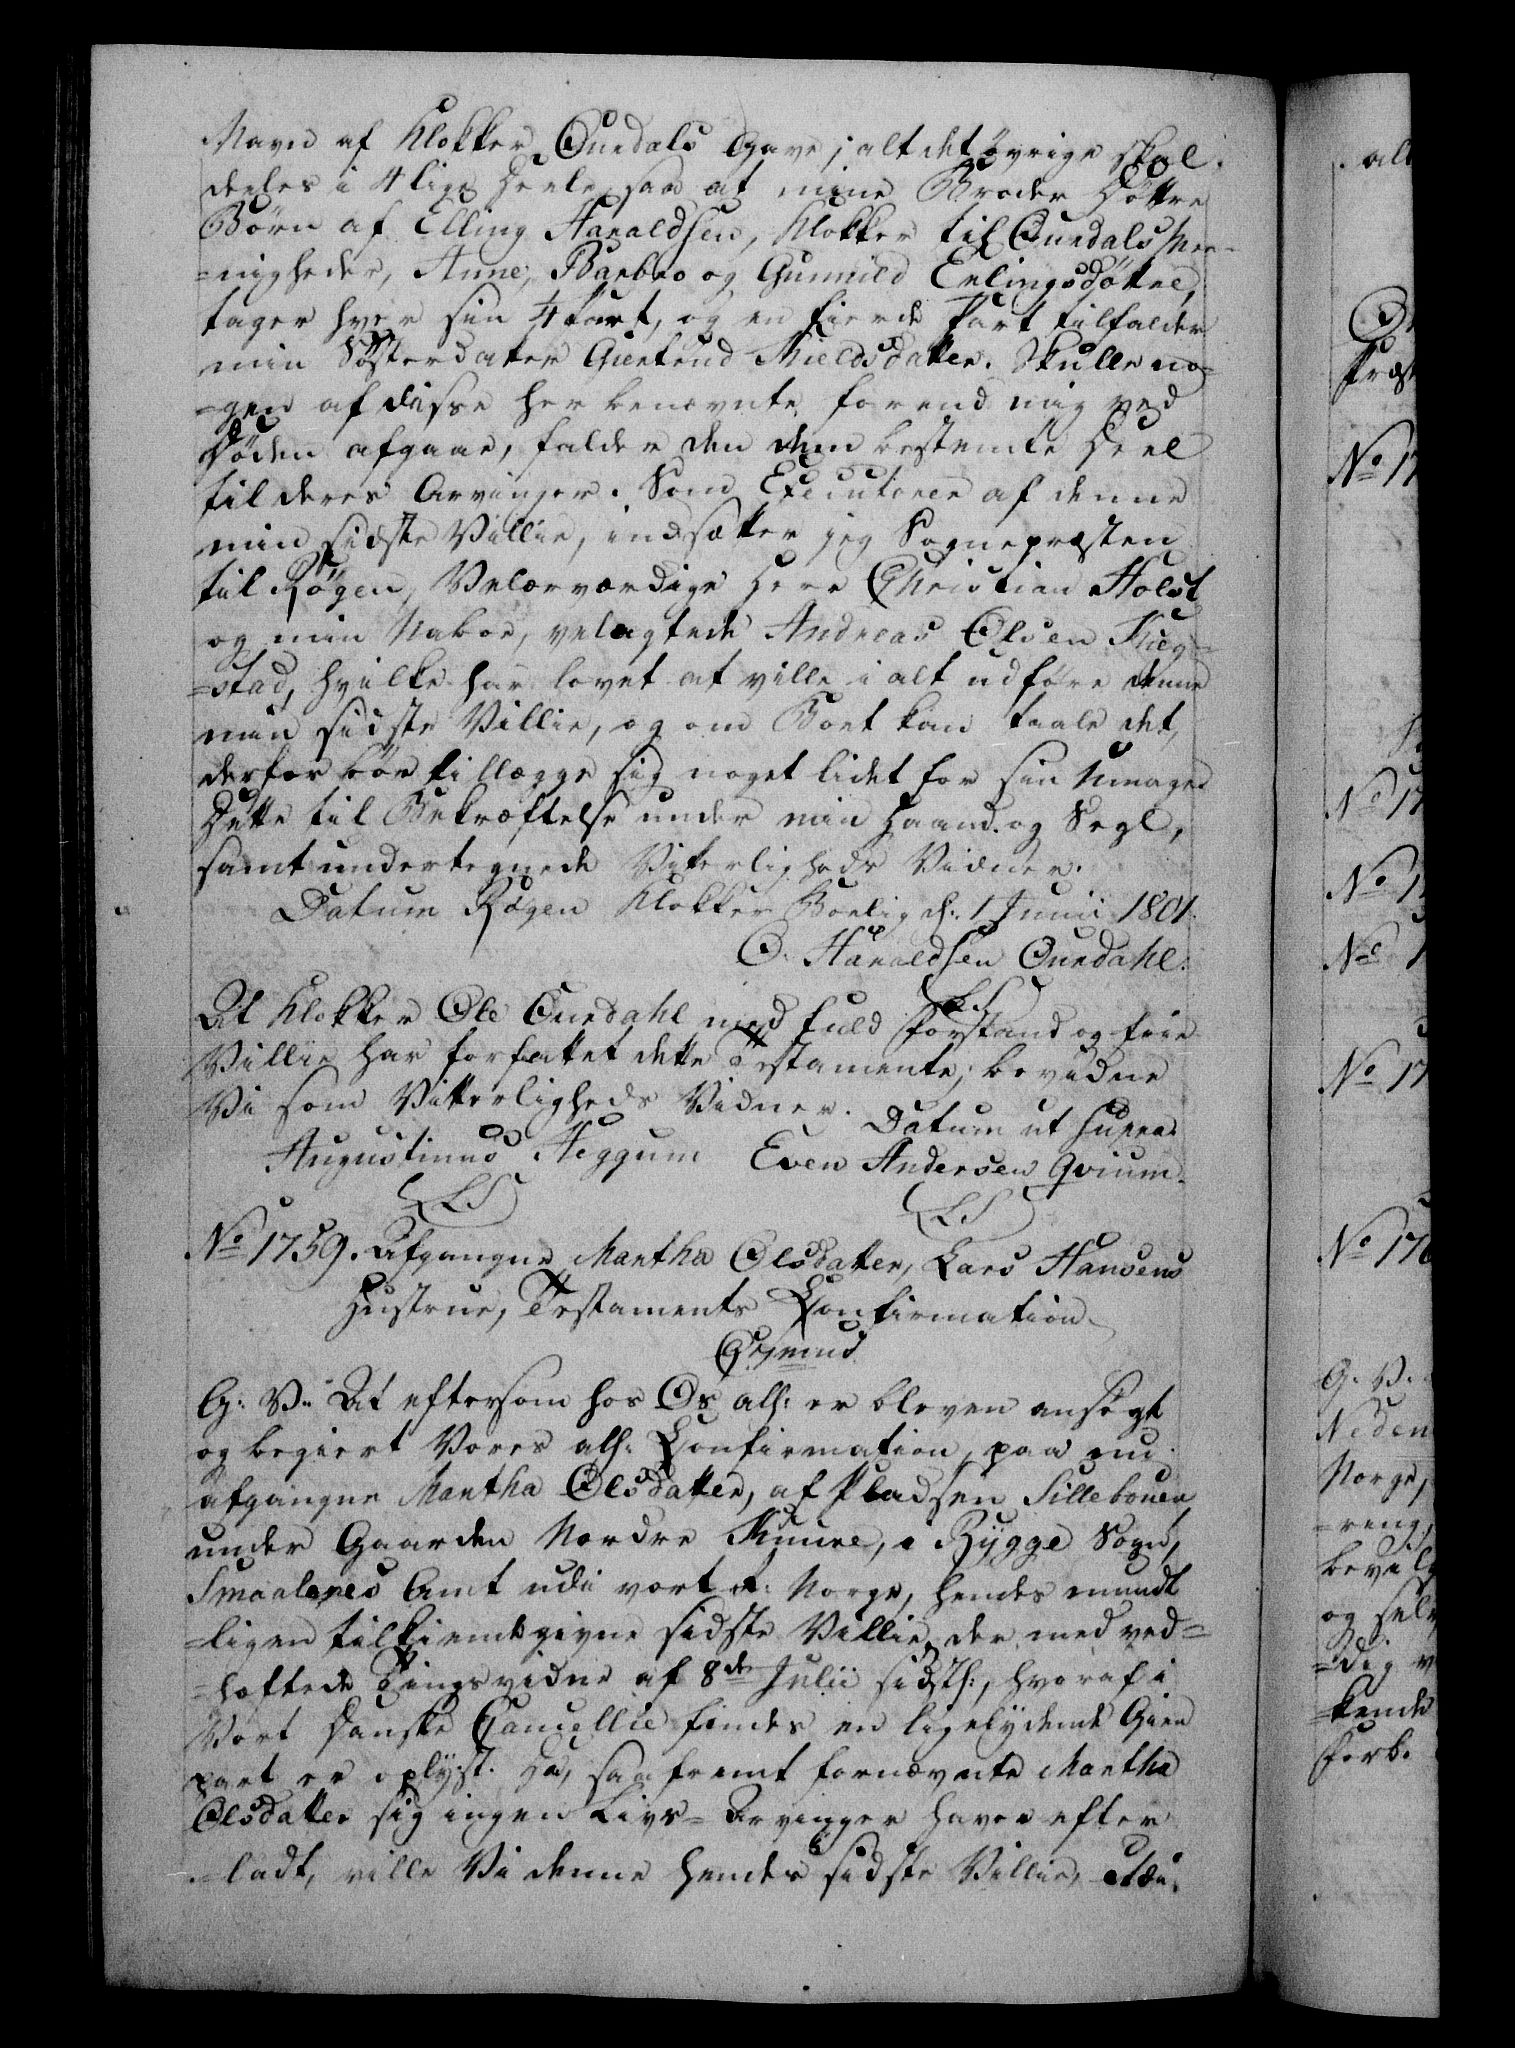 Navn af Klokker Ourdals Gave; alt det øvrige skal
deeles i 4 lige Deele, saa at mine Broder Døttre
Børn af Elling Haraldsen, Klokker til Ourdals Me-
=nigheder, Anne, Barbro og Gunnild Erlingsdøttre,
tager hver sin 4 Part, og en fierde Part tilfalder
min Søsterdatter Giertrud Nielsdatter. Skulle no=
=gen af disse her benævnte forend mig ved
Døden afgaae, falder den dem bestemte Deel
til deres Arvinger. Som Executorer af denne
min sidste Villie, indsætter jeg Sognepræsten
til Røgen, Velærværdige Herr Christian Holst
og min Naboe, velagtede Andreas Olsen
=stad, hvilke har lovet at ville i alt udføre denne
min sidste Villie, og om Boet kan taale det,
derfor bør tillægge sig noget lidet for sin Umage.
Dette til Bekræftelse under min Haand og Segl,
samt undertegnede Vitterligheds Vidner.
Datum Røgen Klokker Boelig d: 1 Junii 1801.
O. Haraldsen Ourdahl.
(L.S.)
At Klokker Ole Ourdahl med fuld Forstand og frie
Villie har forfattet dette Testamente, bevidne
Vi som Vitterligheds Vidner. Datum ut supra.
Augustinus Heggum Even Andersen Qvium.
(L.S.) (L.S.)
No 1759. Afgangne Martha Olsdatter, Lars Hansens
Hustrue, Testaments Confirmation

G: V: At eftersom hos Os alh: er bleven ansøgt
og begiert Vores alh: Confirmation, paa nu
afgangne Martha Olsdatter, af Pladsen Sillebouen
under Gaarden Nordre Kuure, i Rygge Sogn,
Smaalenes Amt udi vort R: Norge, hendes mundt
=ligen tilkiendegivne sidste Villie, der med ved=
=hæftede Tingsvidne af 8de Julii sidstl:, hvoraf i
Vort Danske Cancellie findes en ligelydende Gien
part er oplyst. Da, saafremt fornævnte Martha
Olsdatter sig ingen Livs=Arvinger haver efter
=ladt, ville Vi denne hendes sidste Villie,